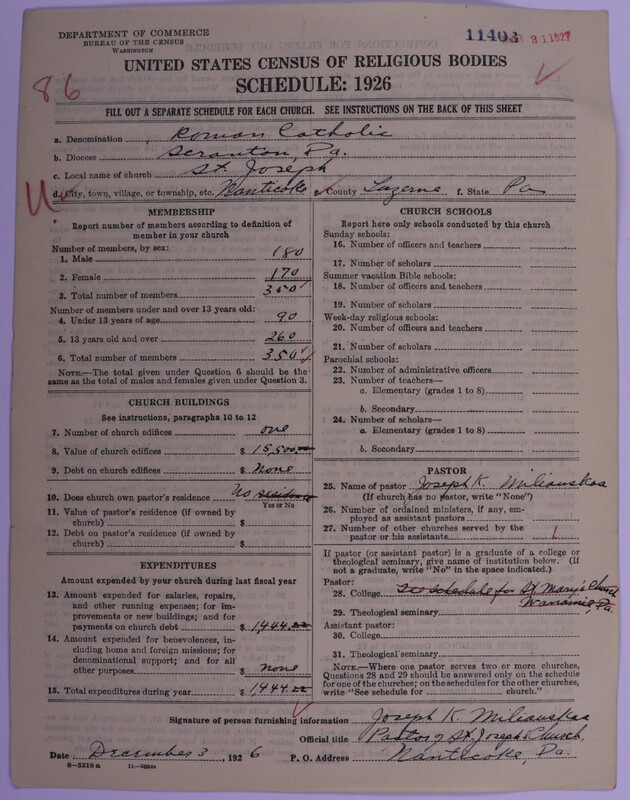 DEPARTMENT OF COMMERCE
BUREAU OF THE CENSUS
WASHINGTON
11403
MAR 31 1927
86
UNITED STATES CENSUS OF RELIGIOUS BODIES
SCHEDULE: 1926
FILL OUT A SEPARATE SCHEDULE FOR EACH CHURCH. SEE INSTRUCTIONS ON THE BACK OF THIS SHEET
a. Denomination Roman Catholic
b. Diocese Scranton, Pa.
c. Local name of church St. Joseph
d. City, town, village, or township, etc. Nanticoke e. County Luzerne f. State Pa
MEMBERSHIP
Report number of members according to definition of
member in your church
Number of members, by sex:
1. Male 180
2. Female 170
3. Total number of members 350
Number of members under and over 13 years old:
4. Under 13 years of age 90
5. 13 years old and over 260
6. Total number of members 350
NOTE.—The total given under Question 6 should be the
same as the total of males and females given under Question 3.
CHURCH BUILDINGS
See instructions, paragraphs 10 to 12
7. Number of church edifices one
8. Value of church edifices $ 15,500.00
9. Debt on church edifices $ None
10. Does church own pastor's residence No residence
Yes or No
11. Value of pastor's residence (if owned by
church) $
12. Debt on pastor's residence (if owned by
church) $
EXPENDITURES
Amount expended by your church during last fiscal year
13. Amount expended for salaries, repairs,
and other running expenses; for im-
provements or new buildings; and for
payments on church debt $ 1,444.22
14. Amount expended for benevolences, in-
cluding home and foreign missions; for
denominational support; and for all
other purposes $ none
15. Total expenditures during year $ 1444.22
CHURCH SCHOOLS
Report here only schools conducted by this church
Sunday schools:
16. Number of officers and teachers
17. Number of scholars
Summer vacation Bible schools:
18. Number of officers and teachers
19. Number of scholars
Week-day religious schools:
20. Number of officers and teachers
21. Number of scholars
Parochial schools:
22. Number of administrative officers
23. Number of teachers—
a. Elementary (grades 1 to 8)
b. Secondary
24. Number of scholars—
a. Elementary (grades 1 to 8)
b. Secondary
PASTOR
25. Name of pastor Joseph K. Miliauskas
(If church has no pastor, write "None")
26. Number of ordained ministers, if any, em-
ployed as assistant pastors
27. Number of other churches served by the
pastor or his assistants 1
If pastor (or assistant pastor) is a graduate of a college or
theological seminary, give name of institution below. (If
not a graduate, write "No" in the space indicated.)
Pastor:
28. College See schedule for St. Mary's Church
Wanamie, Pa.
29. Theological seminary
Assistant pastor:
30. College
31. Theological seminary
NOTE.—Where one pastor serves two or more churches,
Questions 28 and 29 should be answered only on the schedule
for one of the churches; on the schedules for the other churches,
write "See schedule for church."
Signature of person furnishing information Joseph K. Miliauskas
Official title Pastor of St. Joseph's Church,
Date December 3, 1926 P. O. Address Nanticoke, Pa.